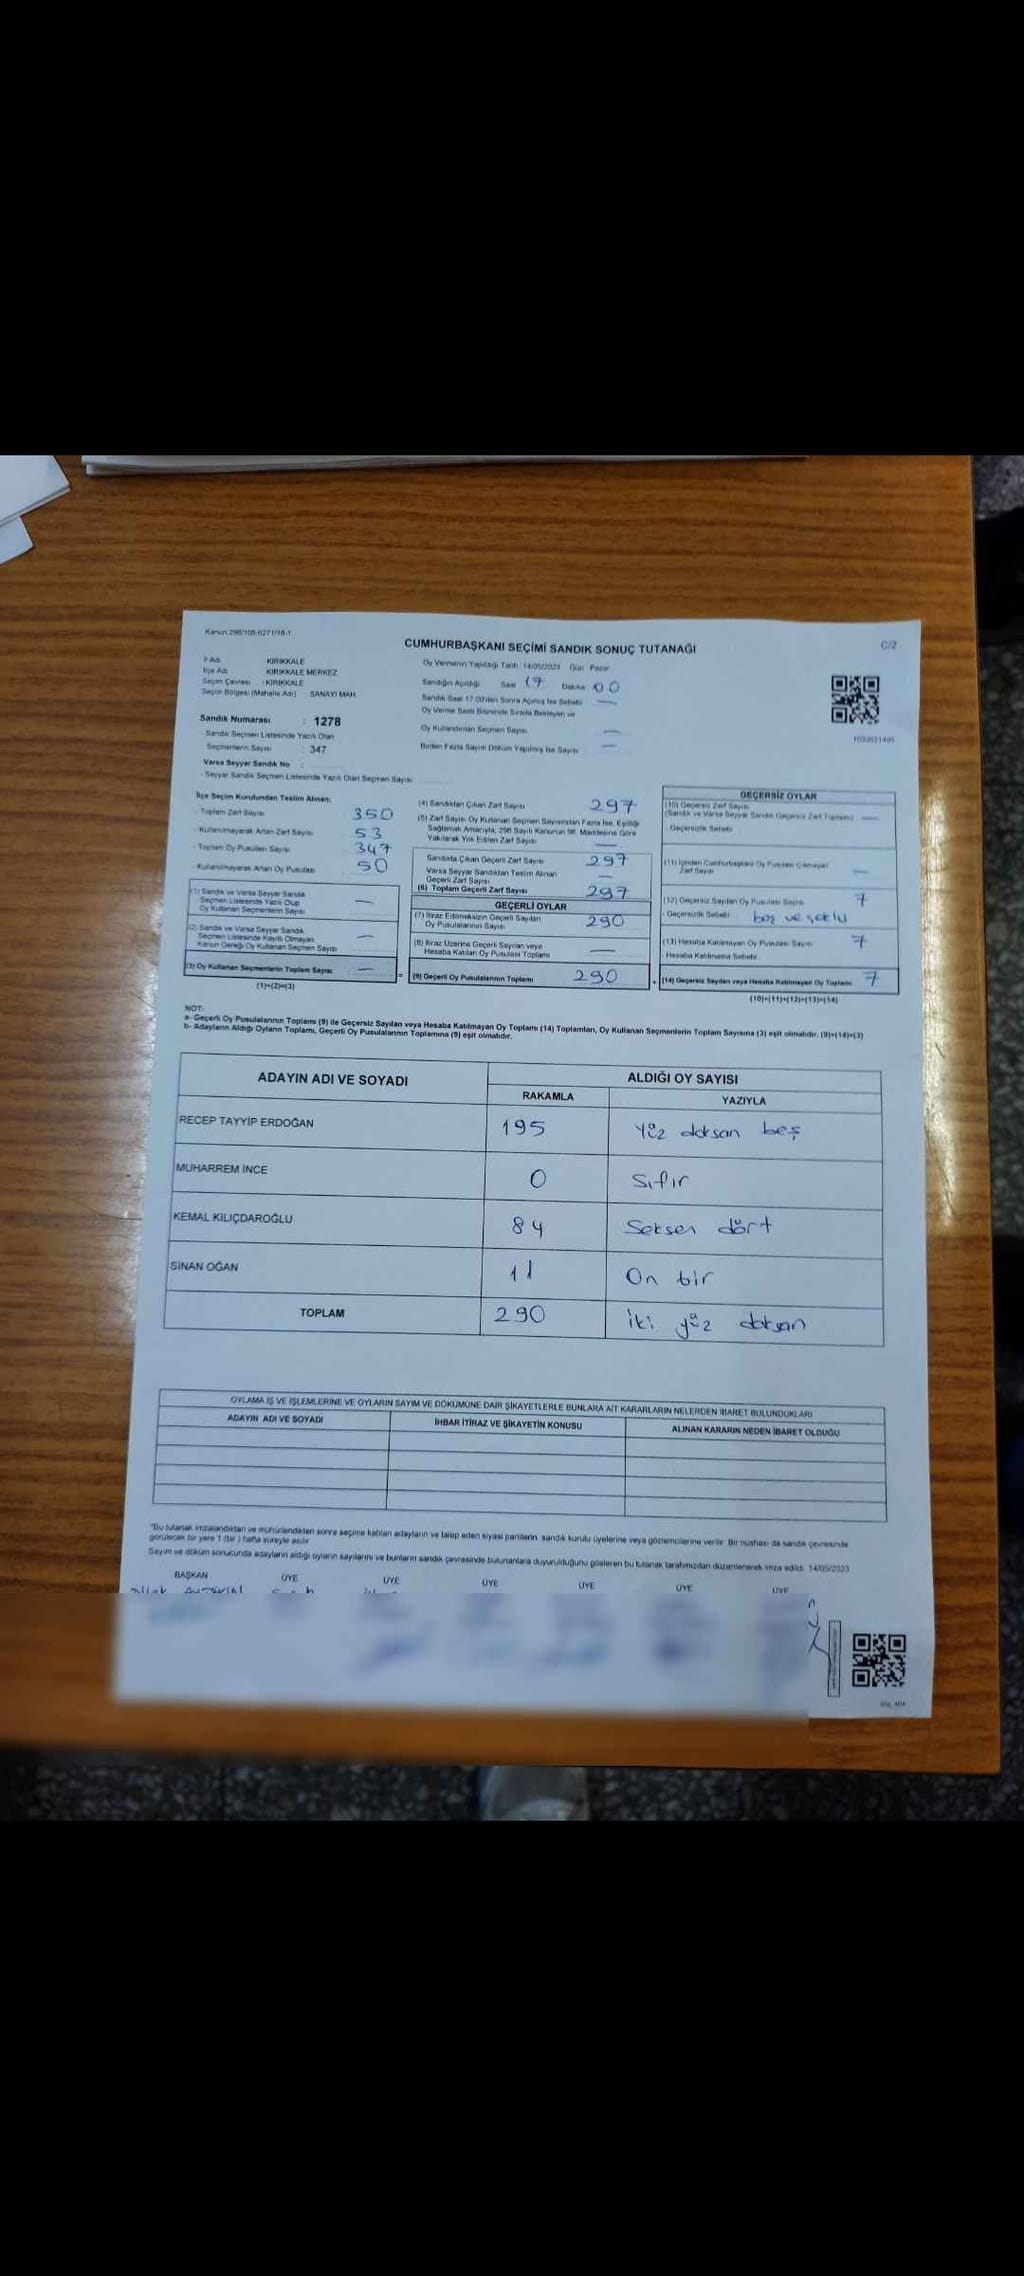 Kanun 298/105-6271/18-1
C/2
CUMHURBAŞKANI SEÇİMİ SANDIK SONUÇ TUTANAĞI
İl Adı KIRIKKALE
İlçe Adı KIRIKKALE MERKEZ
Seçim Çevresi : KIRIKKALE
Seçim Bölgesi (Mahalle Adı) : SANAYİ MAH.
Sandık Numarası : 1278
Sandık Seçmen Listesinde Yazılı Olan
Seçmenlerin Sayısı : 347
Varsa Seyyar Sandık No :
- Seyyar Sandık Seçmen Listesinde Yazılı Olan Seçmen Sayısı
Oy Vermenin Yapıldığı Tarih: 14/05/2023 Gün: Pazar
Sandığın Açıldığı Saat 17 Dakika 00
Sandık Saat 17.00'den Sonra Açılmış İse Sebebi —
Oy Verme Saati Bitiminde Sırada Bekleyen ve
Oy Kullandırılan Seçmen Sayısı —
Birden Fazla Sayım Döküm Yapılmış İse Sayısı —
1093621499
İlçe Seçim Kurulundan Teslim Alınan;
- Toplam Zarf Sayısı 350
- Kullanılmayarak Artan Zarf Sayısı 53
- Toplam Oy Pusulası Sayısı 347
- Kullanılmayarak Artan Oy Pusulası 50
(1) Sandık ve Varsa Seyyar Sandık
Seçmen Listesinde Yazılı Olup
Oy Kullanan Seçmenlerin Sayısı —
(2) Sandık ve Varsa Seyyar Sandık
Seçmen Listesinde Kayıtlı Olmayan
Kanun Gereği Oy Kullanan Seçmen Sayısı —
(3) Oy Kullanan Seçmenlerin Toplam Sayısı —
(1)+(2)=(3)
(4) Sandıktan Çıkan Zarf Sayısı 297
(5) Zarf Sayısı Oy Kullanan Seçmen Sayısından Fazla İse, Eşitliği
Sağlamak Amacıyla, 298 Sayılı Kanunun 98. Maddesine Göre
Yakılarak Yok Edilen Zarf Sayısı —
Sandıkta Çıkan Geçerli Zarf Sayısı 297
Varsa Seyyar Sandıktan Teslim Alınan
Geçerli Zarf Sayısı —
(6) Toplam Geçerli Zarf Sayısı 297
GEÇERLİ OYLAR
(7) İtiraz Edilmeksizin Geçerli Sayılan
Oy Pusulalarının Sayısı 290
(8) İtiraz Üzerine Geçerli Sayılan veya
Hesaba Katılan Oy Pusulası Toplamı —
= (9) Geçerli Oy Pusulalarının Toplamı 290
GEÇERSİZ OYLAR
(10) Geçersiz Zarf Sayısı
(Sandık ve Varsa Seyyar Sandık Geçersiz Zarf Toplamı) —
Geçersizlik Sebebi
(11) İçinden Cumhurbaşkanı Oy Pusulası Çıkmayan
Zarf Sayısı —
(12) Geçersiz Sayılan Oy Pusulası Sayısı 7
- Geçersizlik Sebebi boş ve çoklu
(13) Hesaba Katılmayan Oy Pusulası Sayısı 7
- Hesaba Katılmama Sebebi
+ (14) Geçersiz Sayılan veya Hesaba Katılmayan Oy Toplamı 7
(10)+(11)+(12)+(13)=(14)
NOT:
a- Geçerli Oy Pusulalarının Toplamı (9) ile Geçersiz Sayılan veya Hesaba Katılmayan Oy Toplamı (14) Toplamları, Oy Kullanan Seçmenlerin Toplam Sayısına (3) eşit olmalıdır. (9)+(14)=(3)
b- Adayların Aldığı Oyların Toplamı, Geçerli Oy Pusulalarının Toplamına (9) eşit olmalıdır.
ADAYIN ADI VE SOYADI ALDIĞI OY SAYISI
RAKAMLA YAZIYLA
RECEP TAYYİP ERDOĞAN 195 Yüz doksan beş
MUHARREM İNCE 0 Sıfır
KEMAL KILIÇDAROĞLU 84 Seksen dört
SİNAN OĞAN 11 On bir
TOPLAM 290 İki yüz doksan
OYLAMA İŞ VE İŞLEMLERİNE VE OYLARIN SAYIM VE DÖKÜMÜNE DAİR ŞİKAYETLERLE BUNLARA AİT KARARLARIN NELERDEN İBARET BULUNDUKLARI
ADAYIN ADI VE SOYADI İHBAR İTİRAZ VE ŞİKAYETİN KONUSU ALINAN KARARIN NEDEN İBARET OLDUĞU
"Bu tutanak imzalandıktan ve mühürlendikten sonra seçime katılan adayların ve talep eden siyasi partilerin sandık kurulu üyelerine veya gözlemcilerine verilir. Bir nüshası da sandık çevresinde
görülecek bir yere 1 (bir) hafta süreyle asılır
Sayım ve döküm sonucunda adayların aldığı oyların sayılarını ve bunların sandık çevresinde bulunanlara duyurulduğunu gösteren bu tutanak tarafımızdan düzenlenerek imza edildi. 14/05/2023
BAŞKAN ÜYE ÜYE ÜYE ÜYE ÜYE ÜYE